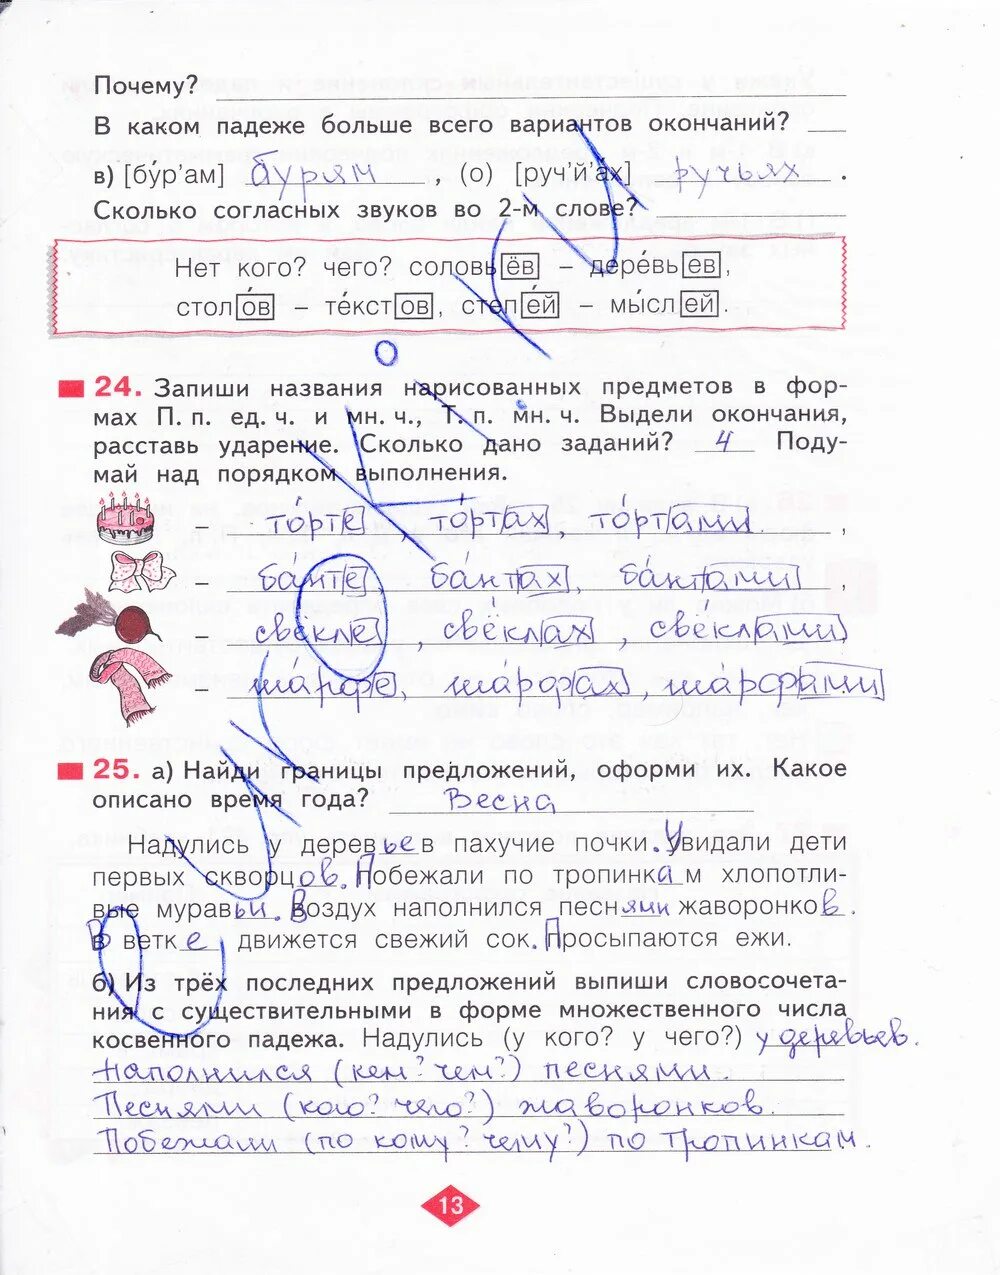 Почему?
В каком падеже больше всего вариантов окончаний?
в) [бур'ам] бурям, (о) [руч'й'ах] ручьях.
Сколько согласных звуков во 2-м слове?
Нет кого? чего? соловьёв – дере́вьев,
столо́в – те́кстов, степе́й – мы́слей.
24. Запиши названия нарисованных предметов в фор-
мах П. п. ед. ч. и мн. ч., Т. п. мн. ч. Выдели окончания,
расставь ударение. Сколько дано заданий? 4 Поду-
май над порядком выполнения.
– то́рте, то́ртах, то́ртами,
– ба́нте, ба́нтах, ба́нтами,
– свёкле, свёклах, свёклами,
– ша́рфе, ша́рфах, ша́рфами
25. а) Найди границы предложений, оформи их. Какое
описано время года? Весна
Надулись у деревьев пахучие почки. Увидали дети
первых скворцов. Побежали по тропинкам хлопотли-
вые муравьи. Воздух наполнился песнями жаворонков.
В ветке движется свежий сок. Просыпаются ежи.
б) Из трёх последних предложений выпиши словосочета-
ния с существительными в форме множественного числа
косвенного падежа. Надулись (у кого? у чего?) у деревьев.
Наполнился (кем? чем?) песнями.
Песнями (кого? чего?) жаворонков.
Побежали (по кому? чему?) по тропинкам.
13